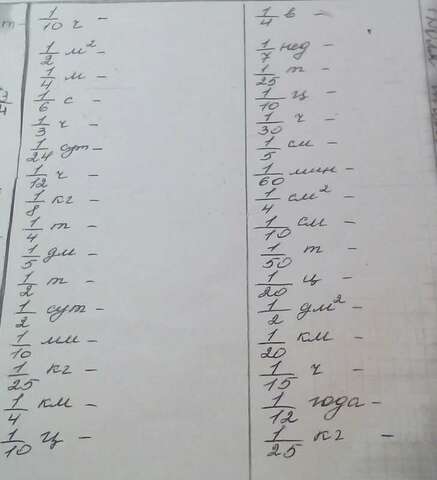 т-
1/10 ч -
1/2 м² -
1/4 м -
1/6 с -
1/3 ч -
1/24 сут -
1/12 ч -
1/8 кг -
1/4 т -
1/5 дм -
1/2 т -
1/2 сут -
1/10 мин -
1/25 кг -
1/4 км -
1/10 ц -
1/4 в -
1/7 нед -
1/25 т -
1/10 ц -
1/30 ч -
1/5 см -
1/60 мин -
1/4 см² -
1/10 см -
1/50 т -
1/20 ц -
1/2 дм² -
1/20 км -
1/15 ч -
1/12 года -
1/25 кг -